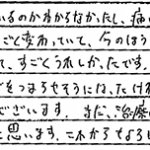 いるのか分からなかったし、痛い
ごと変わっていて、今のほう
て、すごくうれしかったです。
をつまらせそうにな、たけれ
ございます。まだ、ご治療
と思います。これからもよろし